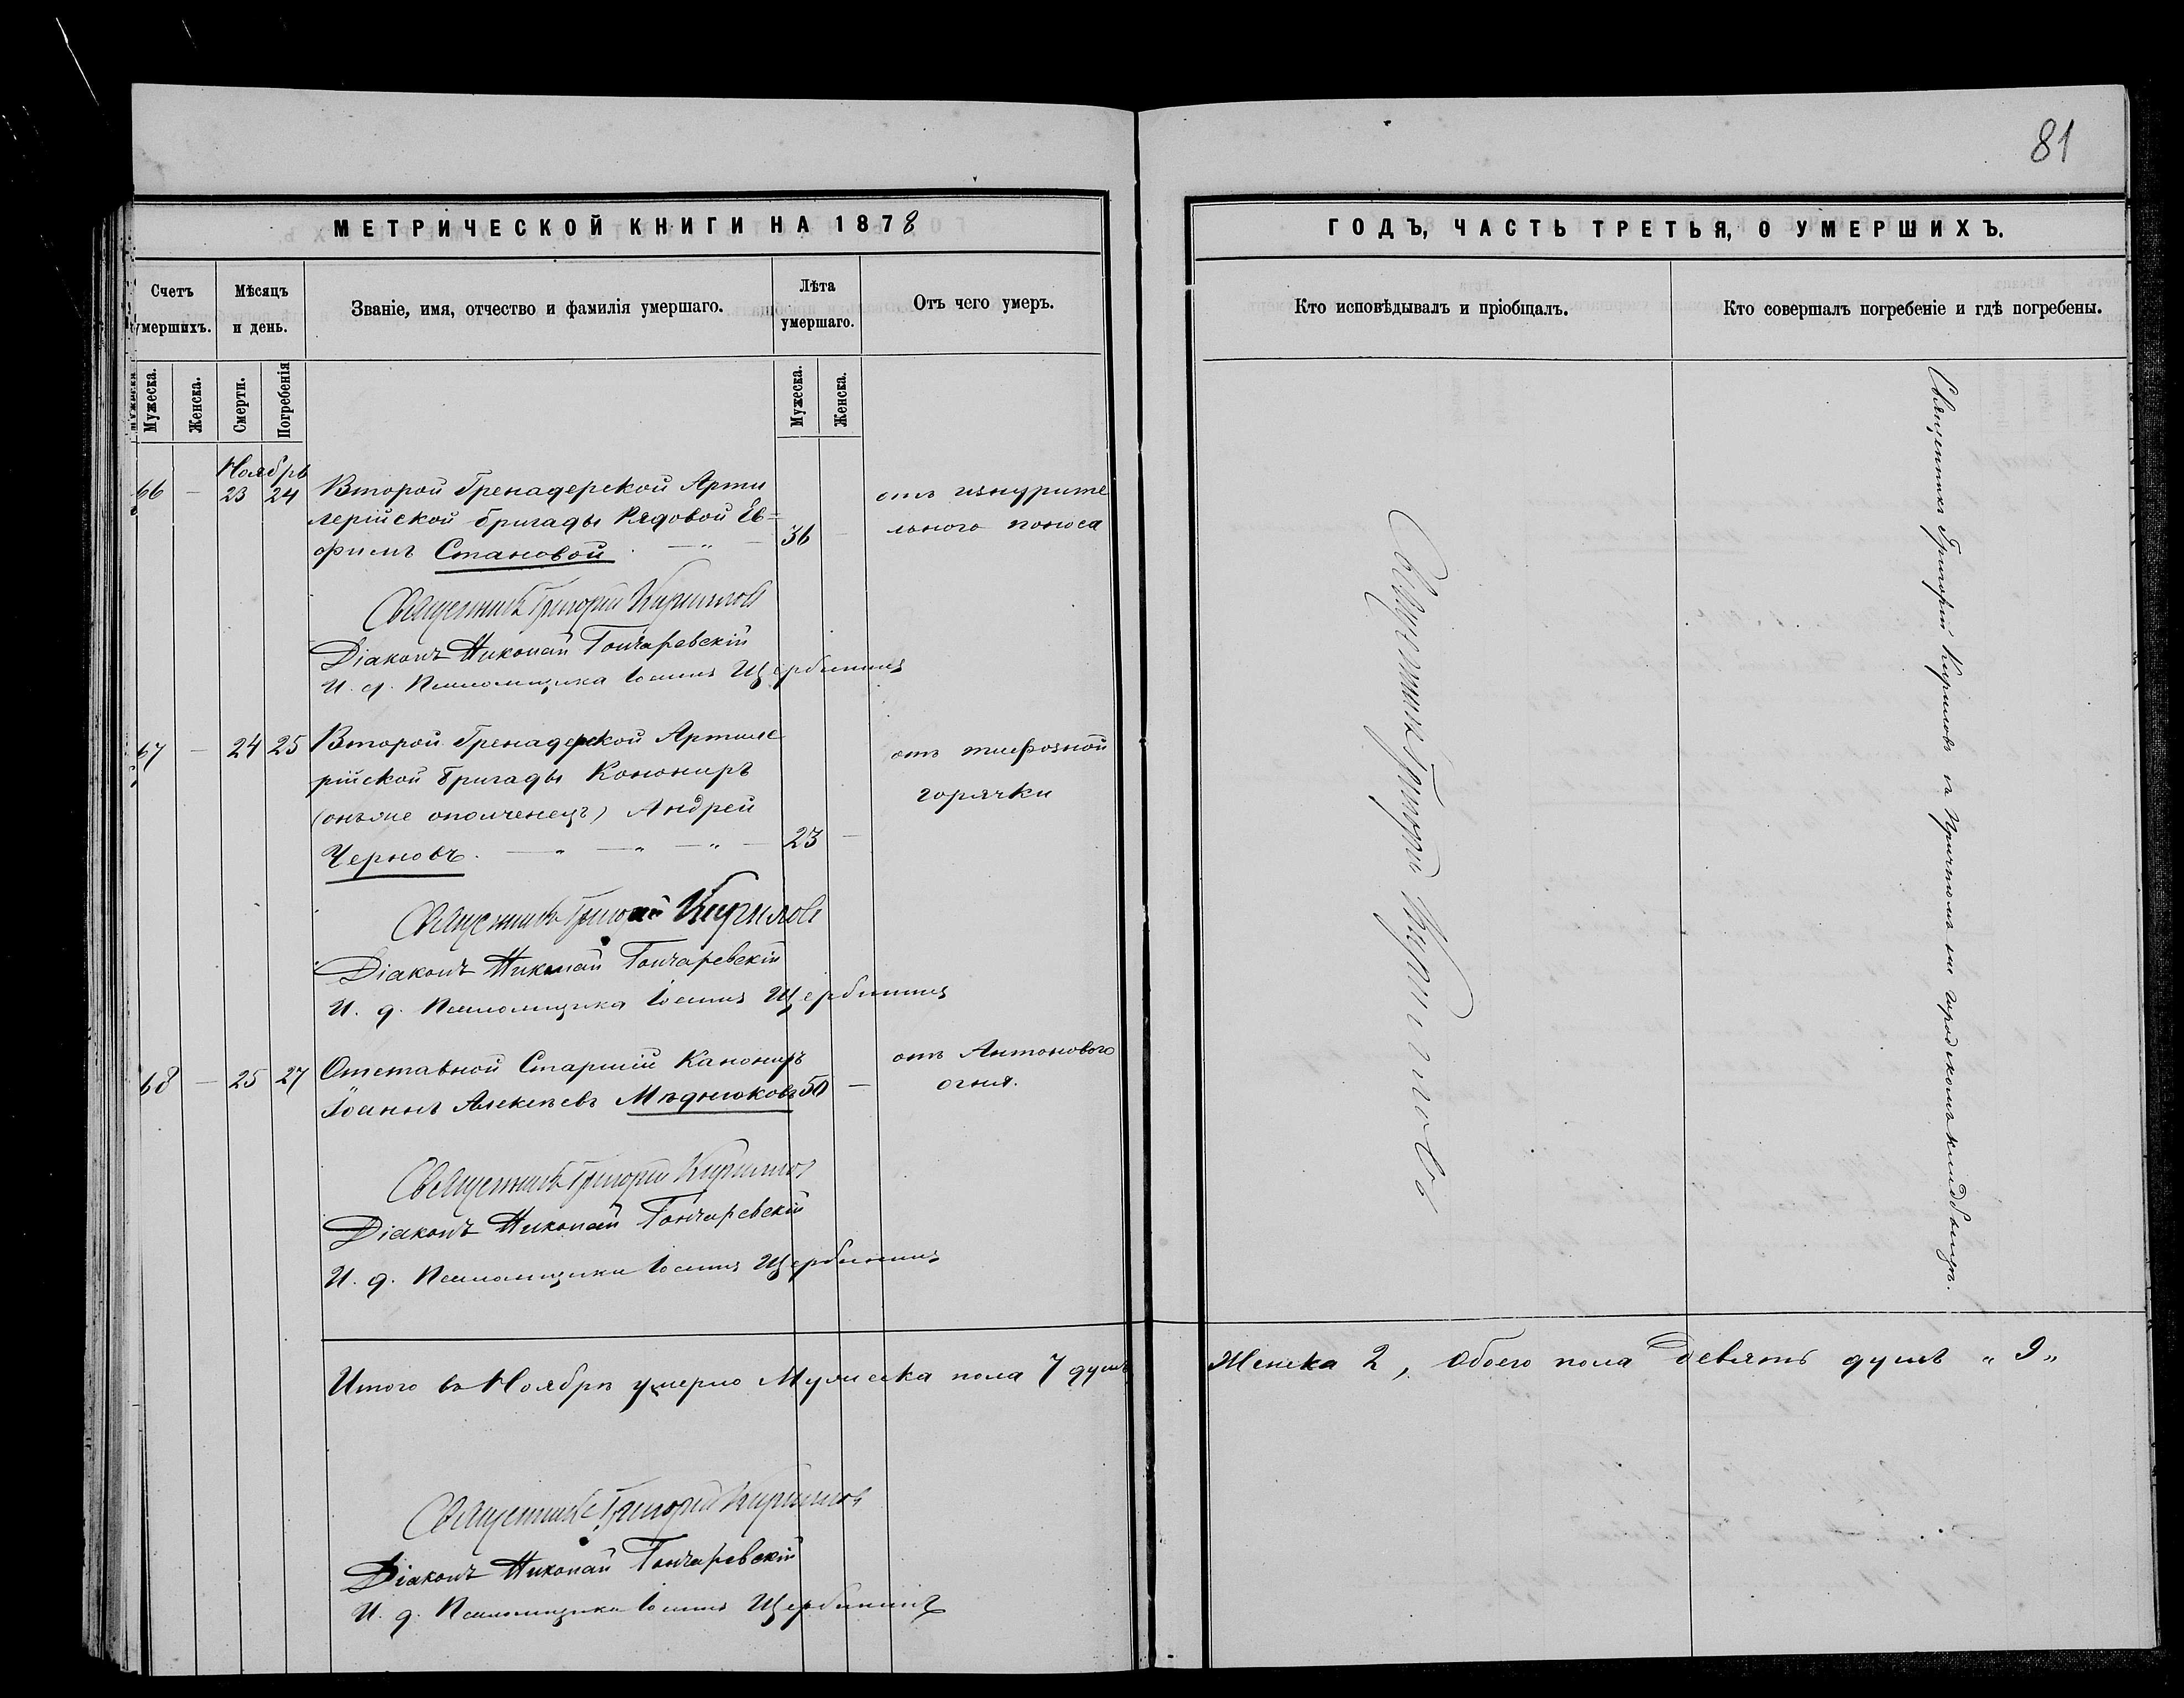 81
МЕТРИЧЕСКОЙ КНИГИ НА 1878
Счетъ умершихъ.
Мѣсяцъ и день.
Званіе, имя, отчество и фамилія умершаго.
Лѣта умершаго.
Отъ чего умеръ.
Мужеска.
Женска.
Смерти.
Погребенія
Мужеска.
Женска.
Ноябрь
66 — 23 24 Второй Гренадерской Арти
лерійской бригады Рядовой Ев=
фимъ Становой. 36 —
отъ изнурите
льного поноса
Священникъ Григорій Кирилловъ
Діаконъ Николай Гончаревскій
И. д. Псаломщика Іоаннъ Щербининъ
67 — 24 25 Второй Гренадерской Артиле
рійской бригады Кононир​ъ
(онъ же ополченецъ) Андрей
Черновъ. 23 —
отъ тифозной
горячки
Священникъ Григорій Кирилловъ
Діаконъ Николай Гончаревскій
И. д. Псаломщика Іоаннъ Щербининъ
68 — 25 27 Отставной Старшій Канониръ
Іоаннъ Алексѣевъ Мѣднюковъ 50 —
отъ Антонового
огня.
Священникъ Григорій Кирилловъ
Діаконъ Николай Гончаревскій
И. д. Псаломщика Іоаннъ Щербининъ
Итого въ Ноябрѣ умерло Мужеска пола 7 душъ
Священникъ Григорій Кирилловъ
Діаконъ Николай Гончаревскій
И. д. Псаломщика Іоаннъ Щербининъ
ГОДЪ, ЧАСТЬ ТРЕТЬЯ, О УМЕРШИХЪ.
Кто исповѣдывалъ и пріобщалъ.
Кто совершалъ погребеніе и гдѣ погребены.
Священникъ Григорій Кирилловъ
Священникъ Григорій Кирилловъ съ Причтомъ на городскомъ кладбищѣ.
Женска 2, Обоего пола девять душъ „ 9 „